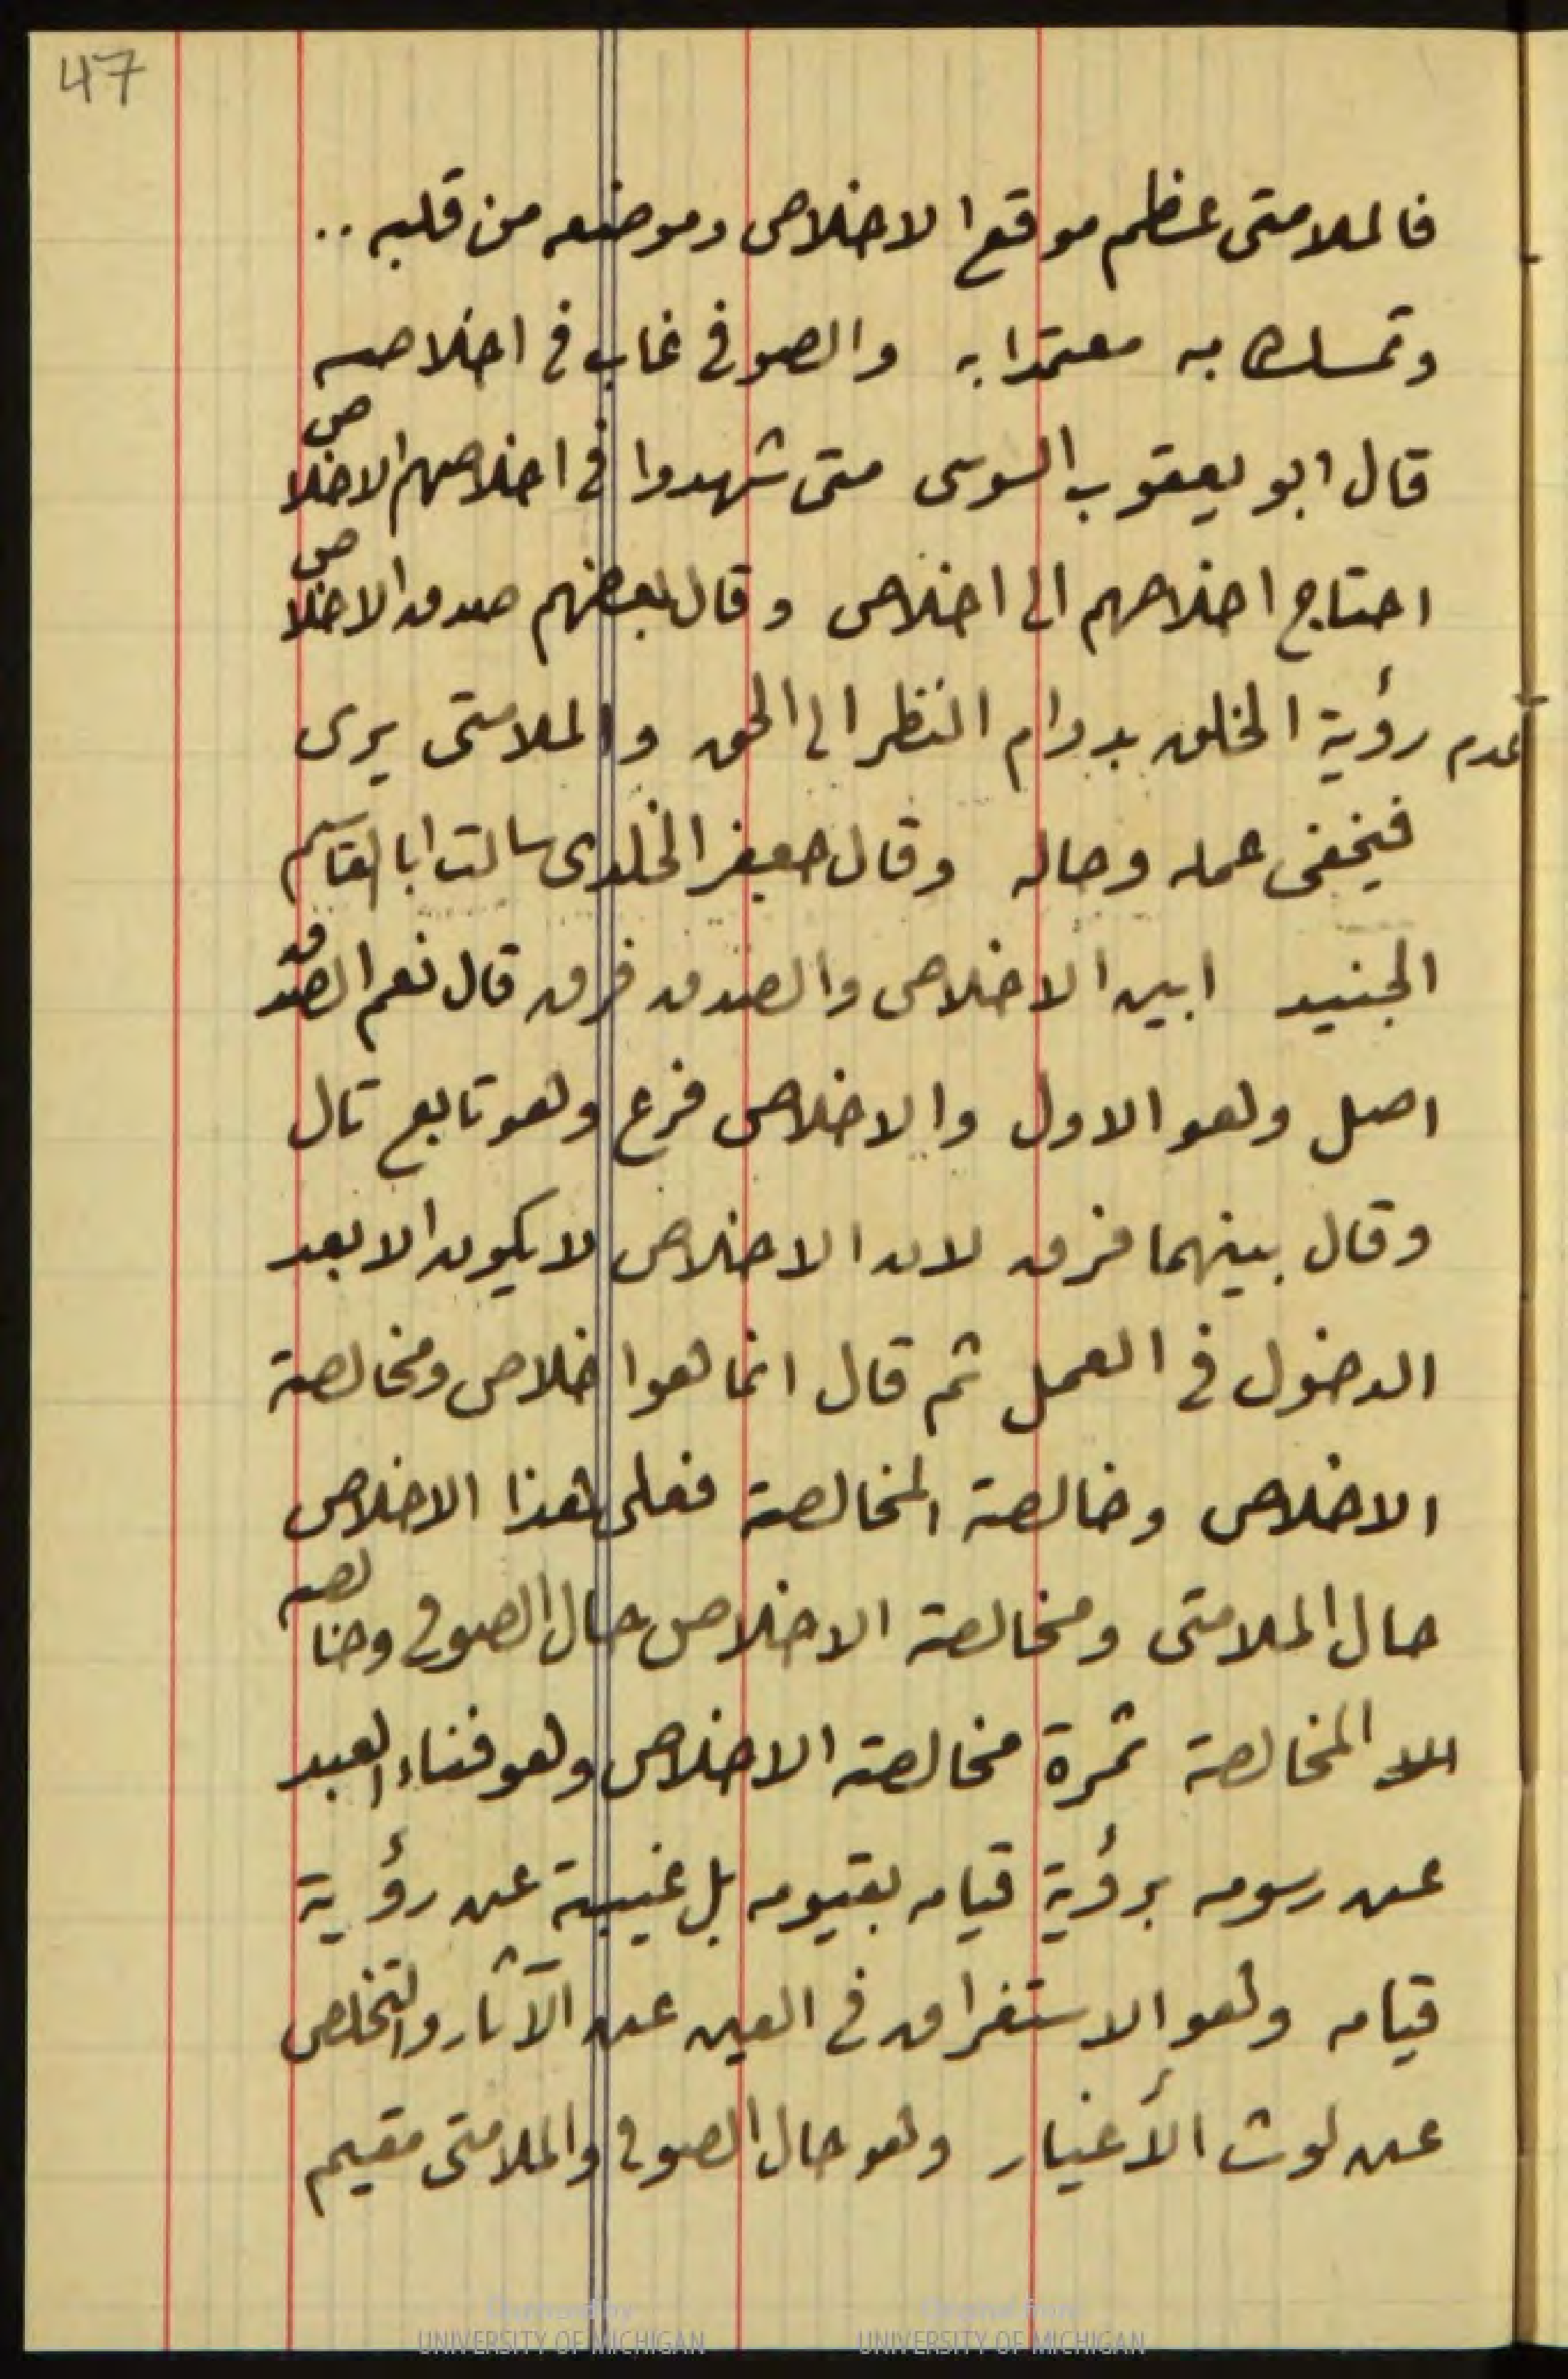 47
فالملامتى عظم موقع الاخلاص وموضعه من قلبه ..
وتمسك به معتمدا به والصوفى غاب فى اخلاصه
قال ابو يعقوب السوسى متى شهدوا فى اخلاصهم الاخلاص
احتاج اخلاصهم الى اخلاص وقال بعضهم صدق الاخلاص
عدم رؤية الخلق بدوام النظر الى الحق والملامتى يرى
فيخفى عمله وحاله وقال جعفر الخلدى سالت ابا القاسم
الجنيد ابين الاخلاص والصدق فرق قال نعم الصدق
اصل وهو الاول والاخلاص فرع وهو تابع قال
وقال بينهما فرق لان الاخلاص لا يكون الا بعد
الدخول فى العمل ثم قال انما هو اخلاص ومخالصة
الاخلاص وخالصة المخالصة فعلى هذا الاخلاص
حال الملامتى ومخالصة الاخلاص حال الصوفى وخالصه
المخالصة ثمرة مخالصة الاخلاص وهو فناء العبد
عن رسومه برؤية قيامه بقيومه بل غيبة عن رؤية
قيامه وهو الاستغراق فى العين عن الآثار والتخلص
عن لوث الأغيار وهو حال الصوفى والملامتى مقيم
UNIVERSITY OF MICHIGAN
UNIVERSITY OF MICHIGAN